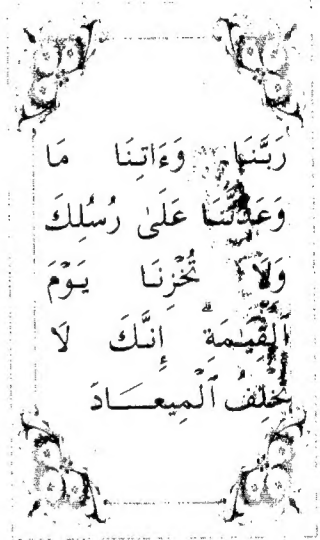 رَبَّنَا وَءَاتِنَا مَا
وَعَدتَّنَا عَلَىٰ رُسُلِكَ
وَلَا تُخْزِنَا يَوْمَ
ٱلْقِيَـٰمَةِ ۗ إِنَّكَ لَا
تُخْلِفُ ٱلْمِيعَـــادَ